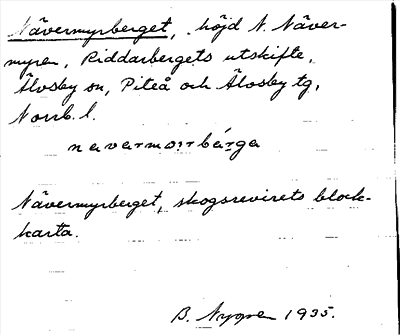 Nävermyrberget, höjd N. Näver-
myren, Riddarbergets utskifte,
Älvsby sn, Piteå och Älvsby tg,
Norrb. l.
navarmɔrrbárga
Nävermyrberget, skogsrevirets block-
karta.
B. Nygren 1935.